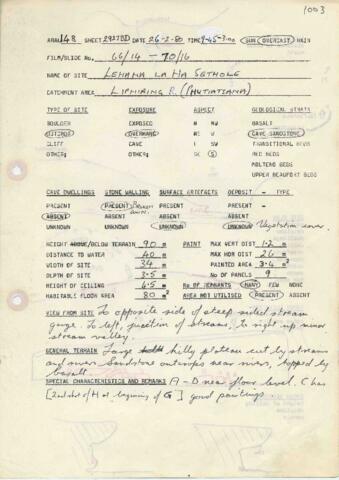 1003
ARAL 148 SHEET 2927BD DATE 26-2-80 TIME 9-45-3:00 SUN OVERCAST RAIN
FILM/SLIDE No. 66/14 – 70/16
NAME OF SITE LEHAHA LA HA SETHOLE
CATCHMENT AREA LIPHIRING R. (PHUTIATSANA)
TYPE OF SITE EXPOSURE ASPECT GEOLOGICAL STRATA
BOULDER EXPOSED N NW BASALT
OUTCROP OVERHANG NE W CAVE SANDSTONE
CLIFF CAVE E SW TRANSITIONAL BEDS
OTHER: OTHER: SE S RED BEDS
MOLTENO BEDS
UPPER BEAUFORT BEDS
CAVE DWELLINGS STONE WALLING SURFACE ARTEFACTS DEPOSIT - TYPE
PRESENT PRESENT Broken down. PRESENT PRESENT
ABSENT ABSENT ABSENT ABSENT
UNKNOWN UNKNOWN UNKNOWN UNKNOWN Vegetation cover.
HEIGHT ABOVE/BELOW TERRAIN 90 m PAINT MAX VERT DIST 1.2 m
DISTANCE TO WATER 40 m MAX HOR DIST 26 m
WIDTH OF SITE 34 m PAINTED AREA 3.4 m²
DEPTH OF SITE 3.5 m No OF PANELS 9
HEIGHT OF CEILING 6.5 m No OF REMNANTS MANY FEW NONE
HABITABLE FLOOR AREA 80 m² AREA NOT UTILISED PRESENT ABSENT
VIEW FROM SITE To opposite side of steep sided stream
gorge. To left, junction of streams, to right up minor
stream valley.
GENERAL TERRAIN Large hilly plateau cut by streams
and rivers. Sandstone outcrops near rivers, topped by
basalt.
SPECIAL CHARACTERISTICS AND REMARKS A – D near floor level. C has
[2nd shot of H at beginning of G] good paintings